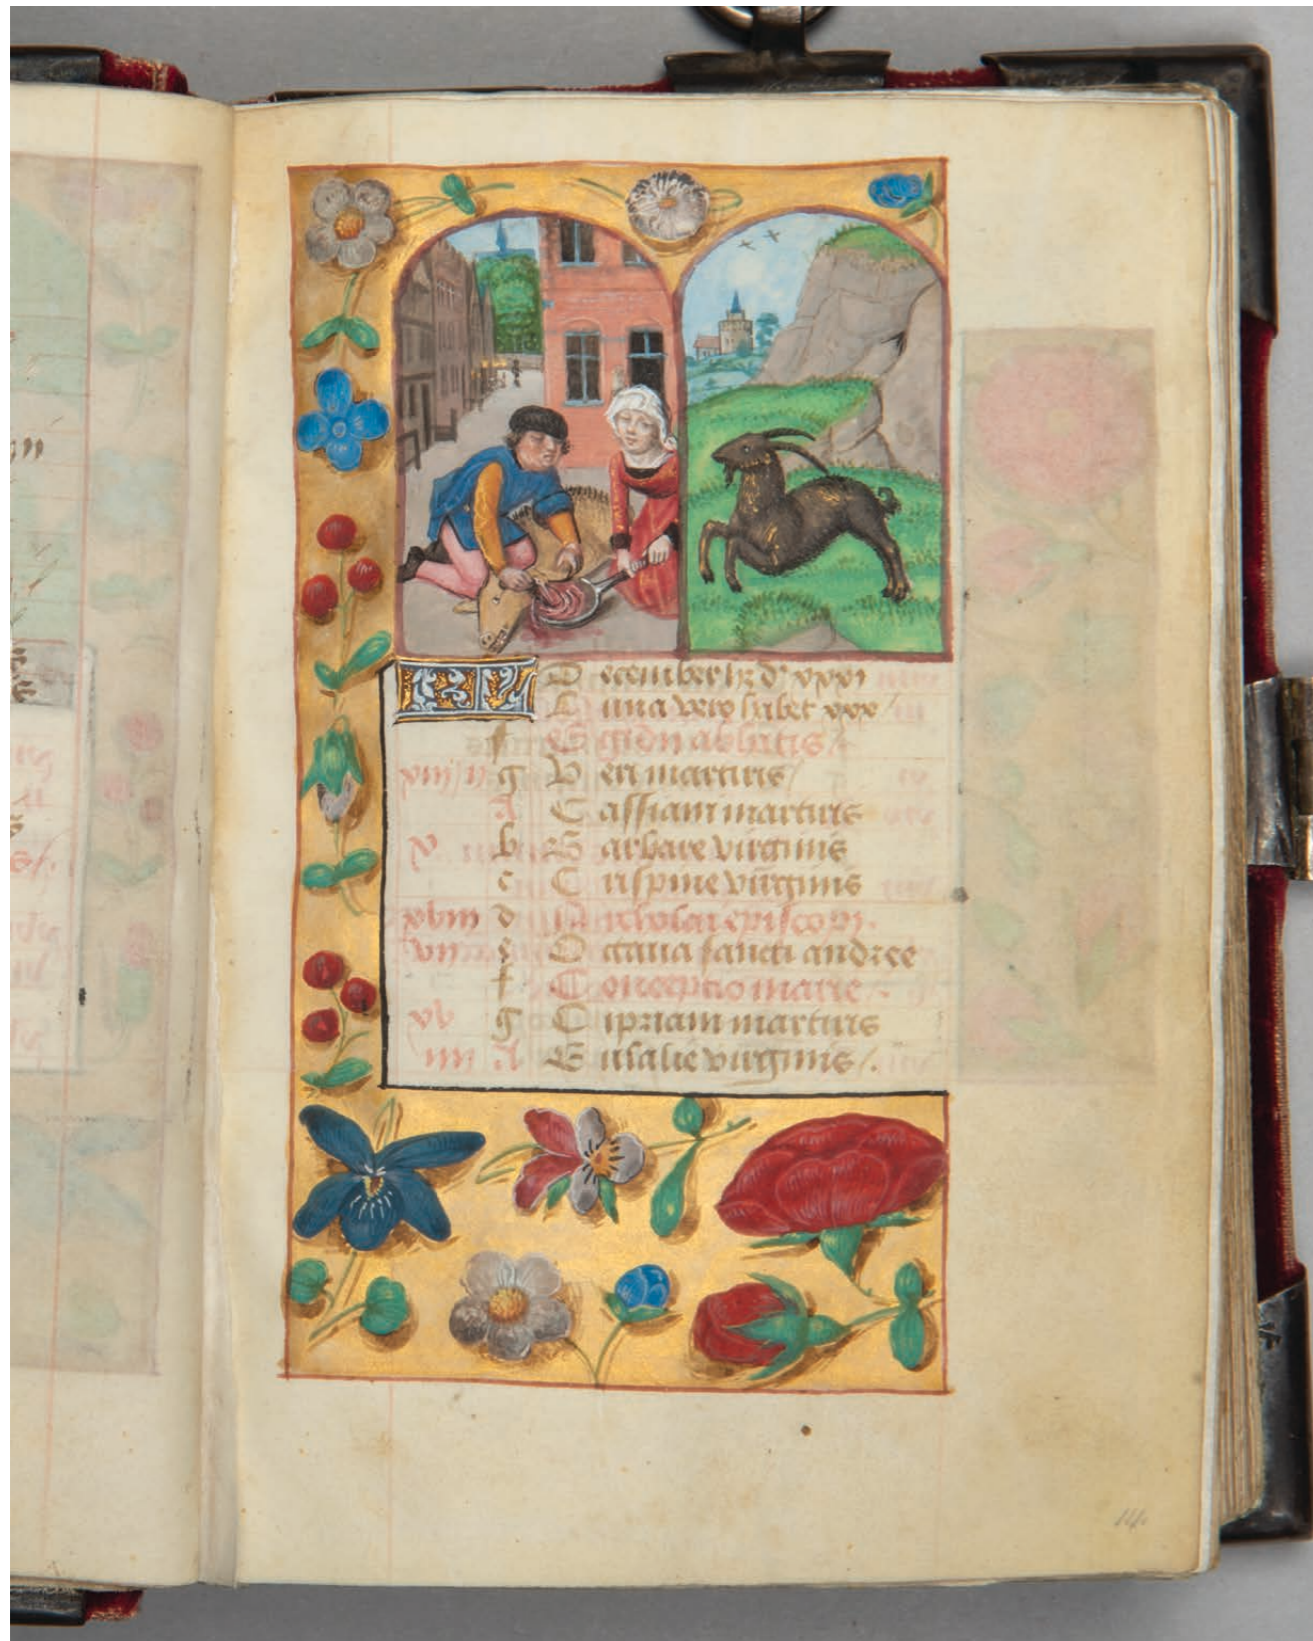 KL December hz d' xxxi
Luna vero habet xxx
f Egidii abbatis
xiii g Veri martiris
A Cassiani martiris
b Barbare virginis
c Crispine virginis
xviii d Nicholai episcopi.
vii e Octava sancti andree
f Conceptio marie.
xv g Cipriani martiris
iiii A Eulalie virginis
14